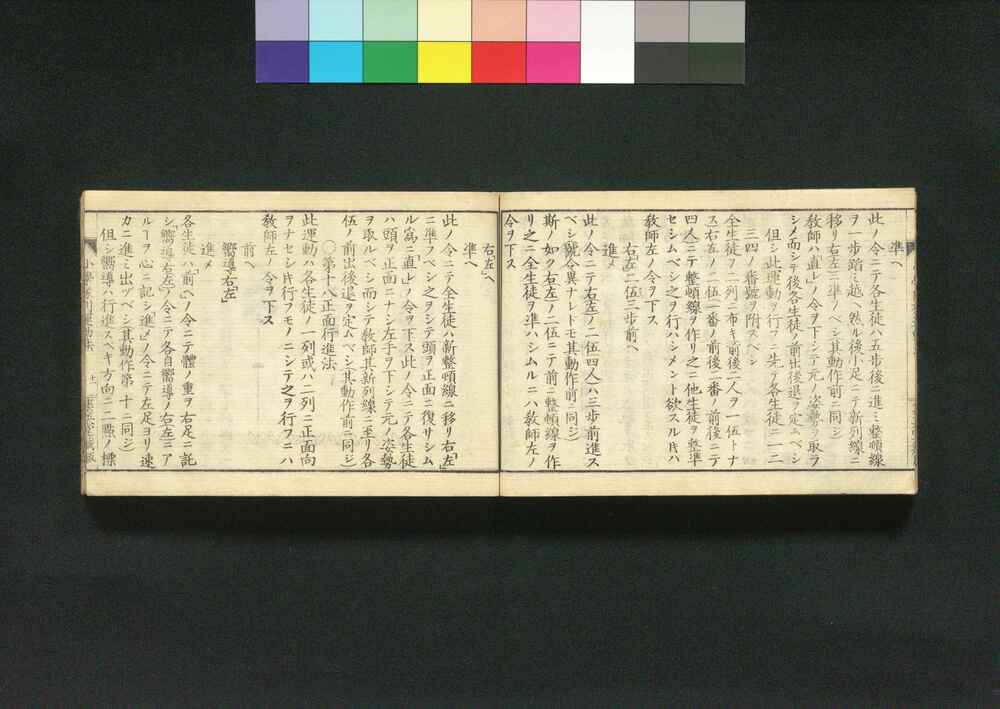 準ヘ
此ノ令ニテ各生徒ハ五歩後ニ進ミ整頓線
ヲ一歩踏ミ越ヘ然ル後小足ニテ新列線ニ
移リ右左ニ準ノハ其動作前ニ同シ
教師ハ直レノ令ヲ下シテ元ノ姿勢ヲ取ラ
シメ而シテ後各生徒ノ前出後退ヲ定ムベシ
但シ此運動ヲ行フニ先テ各生徒ニ一二
三四ノ番號ヲ附スベシ
全生徒ヲ二列ニ布キ前後二人ヲ一伍トナ
ス右左ノ二伍一番ノ前後二番ノ前後ニテ
四人ニテ整頓線ヲ作リ之ニ他生徒ヲ整準
セシムベシ之ヲ行ハシメント欲スルキハ
教師左ノ令ヲ下ス
右左二伍三歩前ヘ
進メ
此ノ令ニテ右左ノ二伍四人ハ三歩前進ス
ベシ號令異ナレトモ其動作前ニ同シ
斯ノ如ク右左ノ二伍ニテ前ニ整頓線ヲ作
リ之ニ全生徒ヲ準ハシムルニハ教師左ノ
令ヲ下ス
右左ヘ
準ヘ
此ノ令ニテ全生徒ハ新整頓線ニ移リ右左
ニ準フベシ之ヲシテ頭ヲ正面ニ復サシム
ル為ニ直レノ令ヲ下ス此ノ令ニテ各生徒
ハ頭ヲ正面ニナシ左手ヲ下シテ元ノ姿勢
ヲ取ルベシ而シテ教師其新列線ニ至リ各
伍ノ前出後退ヲ定ムベシ其動作前ニ同シ
〇第十八正面行進法
此運動ハ各生徒ノ一列或ハ二列ニ正面向
ヲナセシキ行フモノニシテ之ヲ行フニハ
教師左ノ令ヲ下ス
前ヘ
嚮導右左
進メ
各生徒ハ前ヘノ令ニテ體ノ重ヲ右足ニ託
シ嚮導右左ノ令ニテ各自嚮導ノ右左ニア
ルヿヲ心ニ記シ進メノ令ニテ左足ヨリ速
カニ進ミ出ヅベシ其動作第十二同シ
但シ嚮導ハ行進スベキ方向ニ二點ノ標